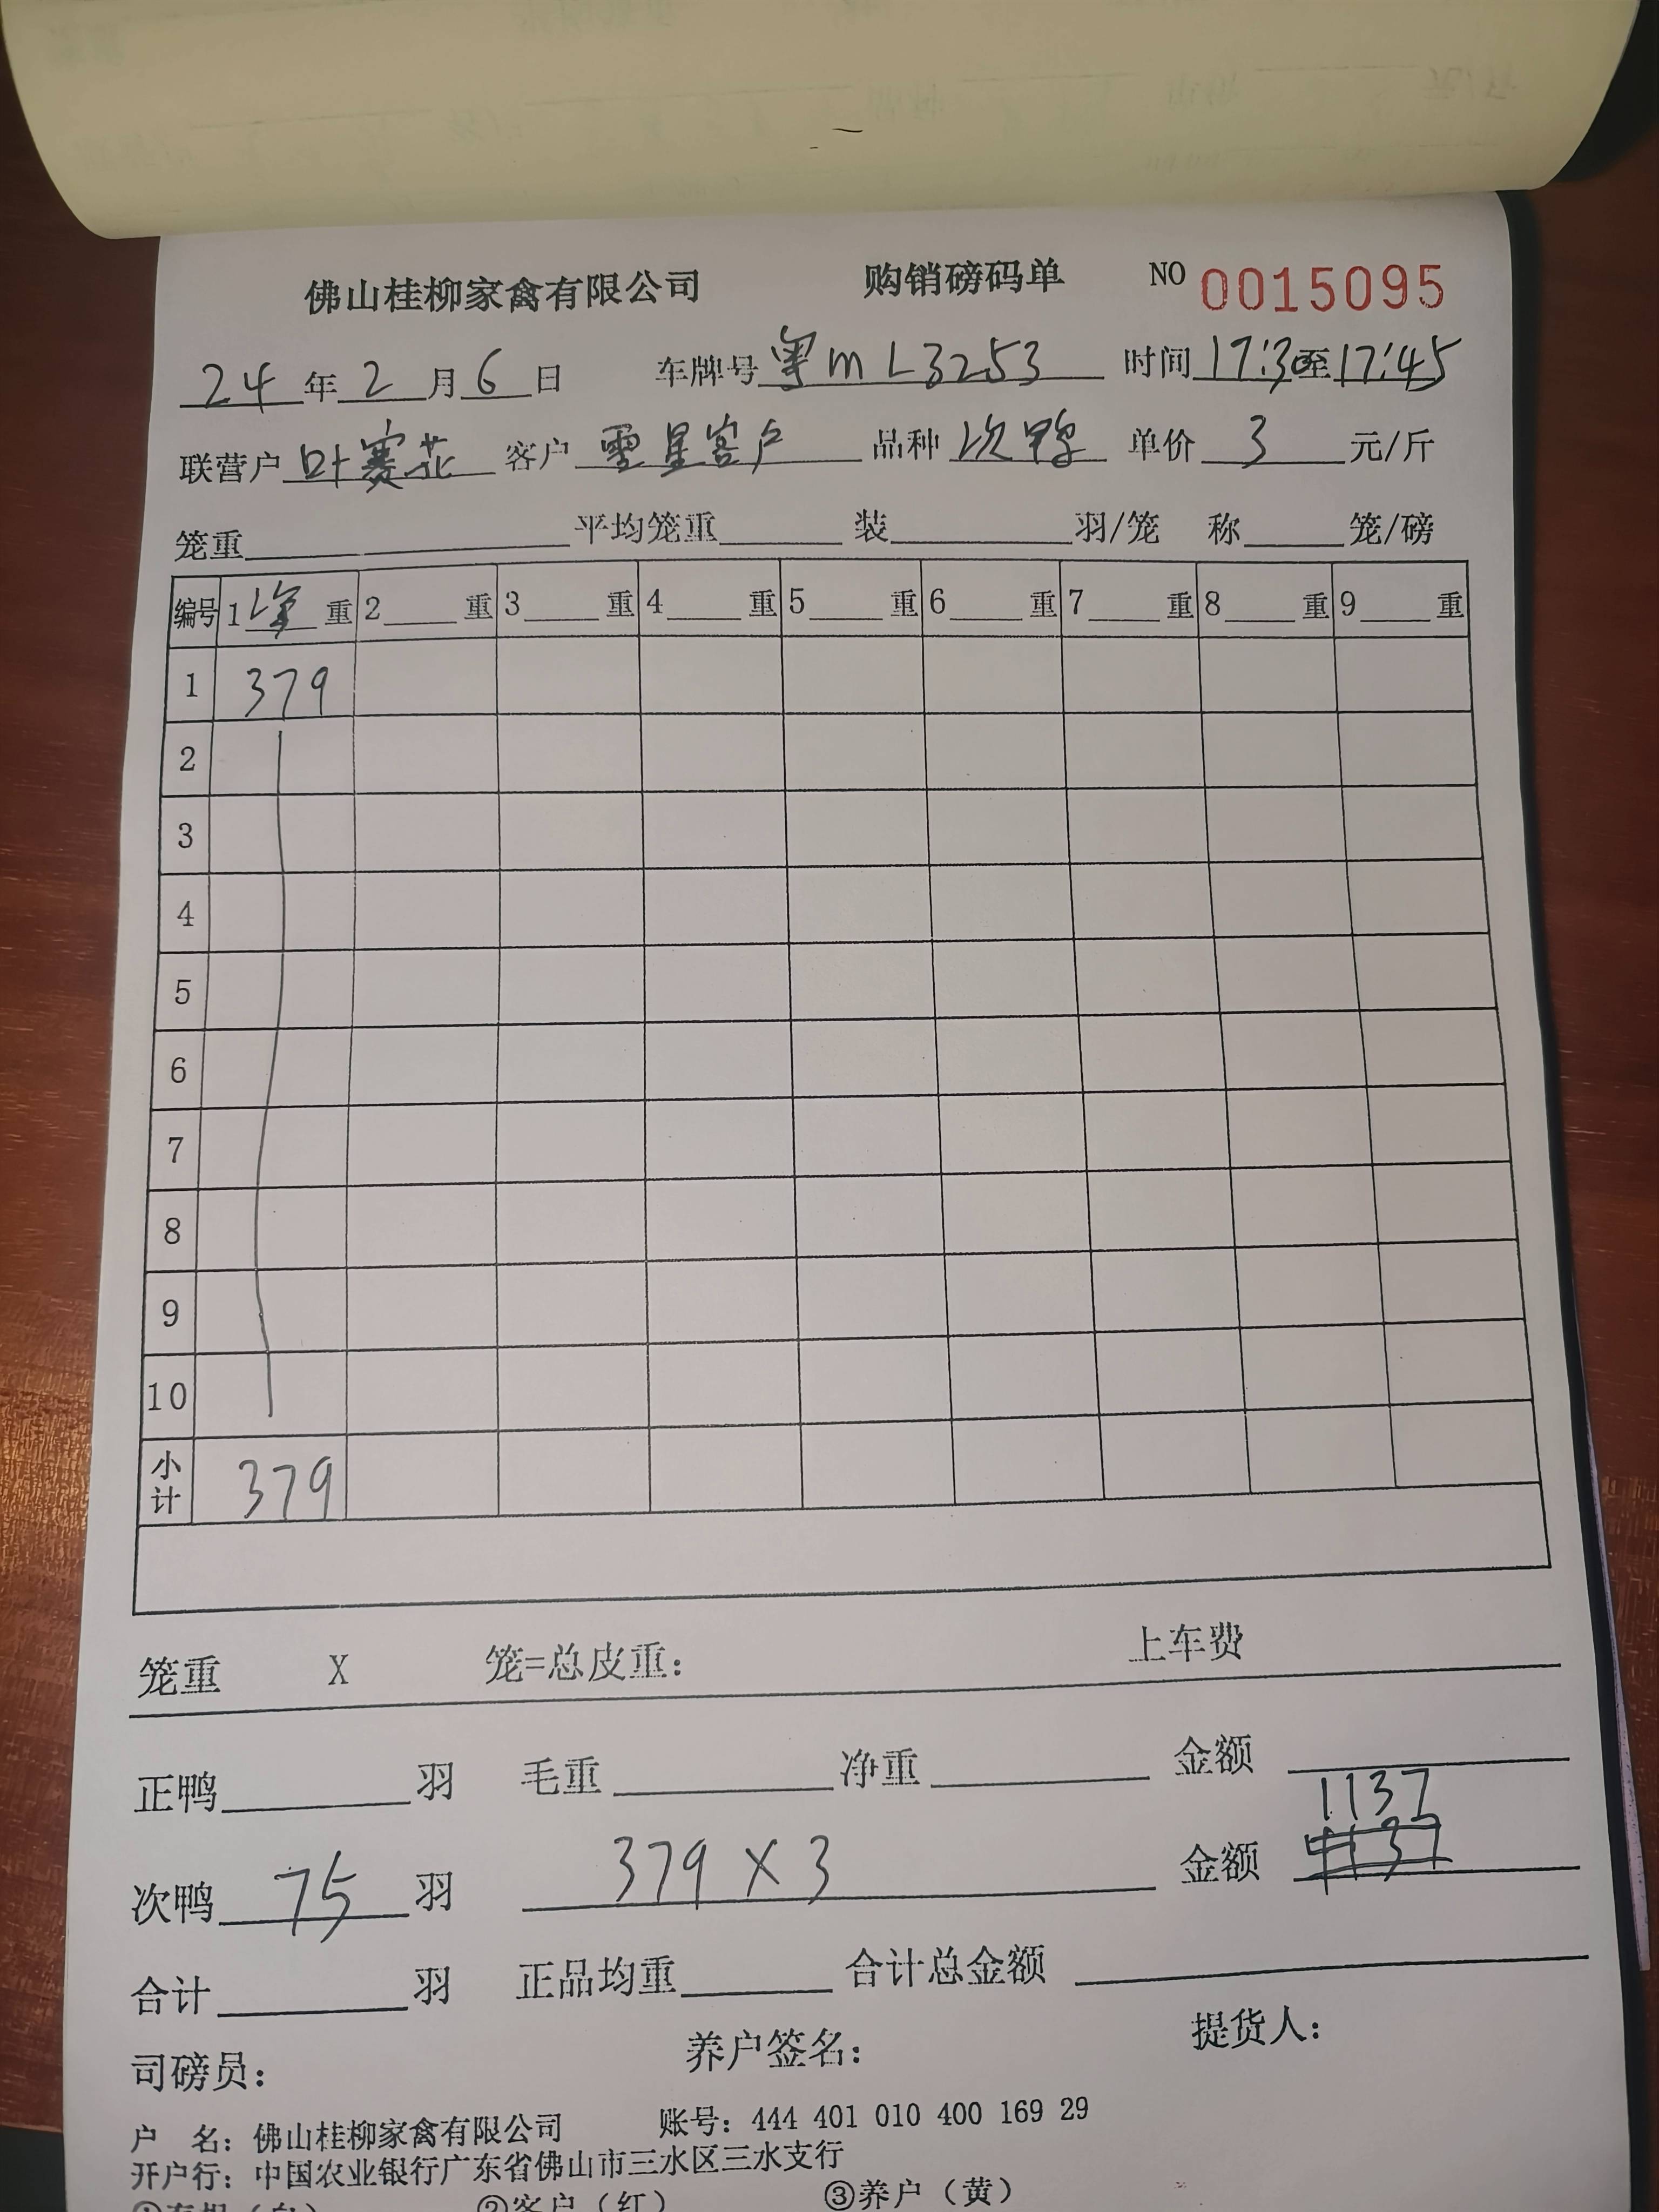 佛山桂柳家禽有限公司 购销磅码单 NO 0015095
24 年 2 月 6 日 车牌号 粤 m L3253 时间 17:30至17:45
联营户 叶赛花 客户 零星客户 品种 次鸭 单价 3 元/斤
笼重 平均笼重 装 羽/笼 称 笼/磅
编号 1 净 重 2 重 3 重 4 重 5 重 6 重 7 重 8 重 9 重
1 379
2
3
4
5
6
7
8
9
10
小计 379
笼重 X 笼=总皮重: 上车费
正鸭 羽 毛重 净重 金额
1137
次鸭 75 羽 379 X 3 金额
合计 羽 正品均重 合计总金额
司磅员: 养户签名: 提货人:
户 名: 佛山桂柳家禽有限公司 账号: 444 401 010 400 169 29
开户行: 中国农业银行广东省佛山市三水区三水支行
②客户(红) ③养户(黄)